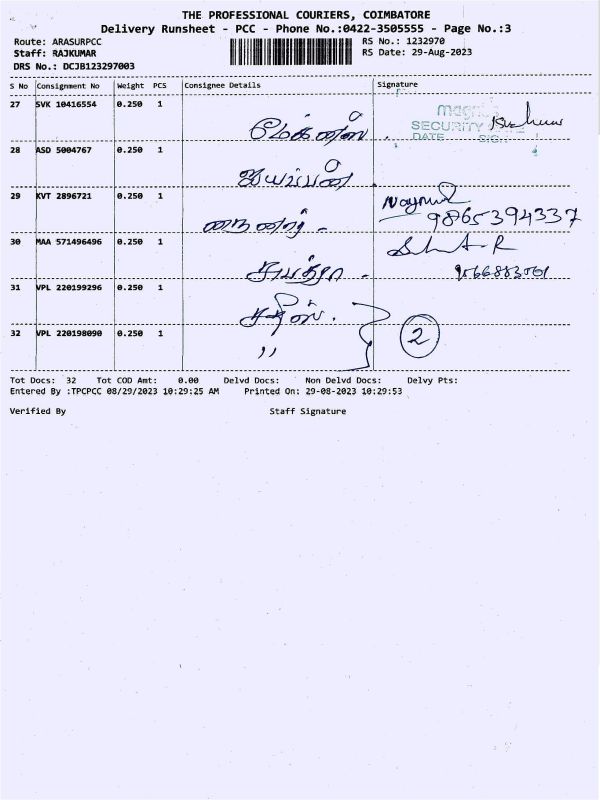 THE PROFESSIONAL COURIERS, COIMBATORE
Delivery Runsheet - PCC - Phone No.:0422-3505555 - Page No.:3
Route: ARASURPCC RS No.: 1232970
Staff: RAJKUMAR RS Date: 29-Aug-2023
DRS No.: DCJB123297003
S No Consignment No Weight PCS Consignee Details Signature
27 SVK 10416554 0.250 1
SECURITY
DATE SIGN
28 ASD 5004767 0.250 1
29 KVT 2896721 0.250 1
9865394337
30 MAA 571496496 0.250 1
31 VPL 220199296 0.250 1
32 VPL 220198090 0.250 1 2
,,
Tot Docs: 32 Tot COD Amt: 0.00 Delvd Docs: Non Delvd Docs: Delvy Pts:
Entered By :TPCPCC 08/29/2023 10:29:25 AM Printed On: 29-08-2023 10:29:53
Verified By Staff Signature